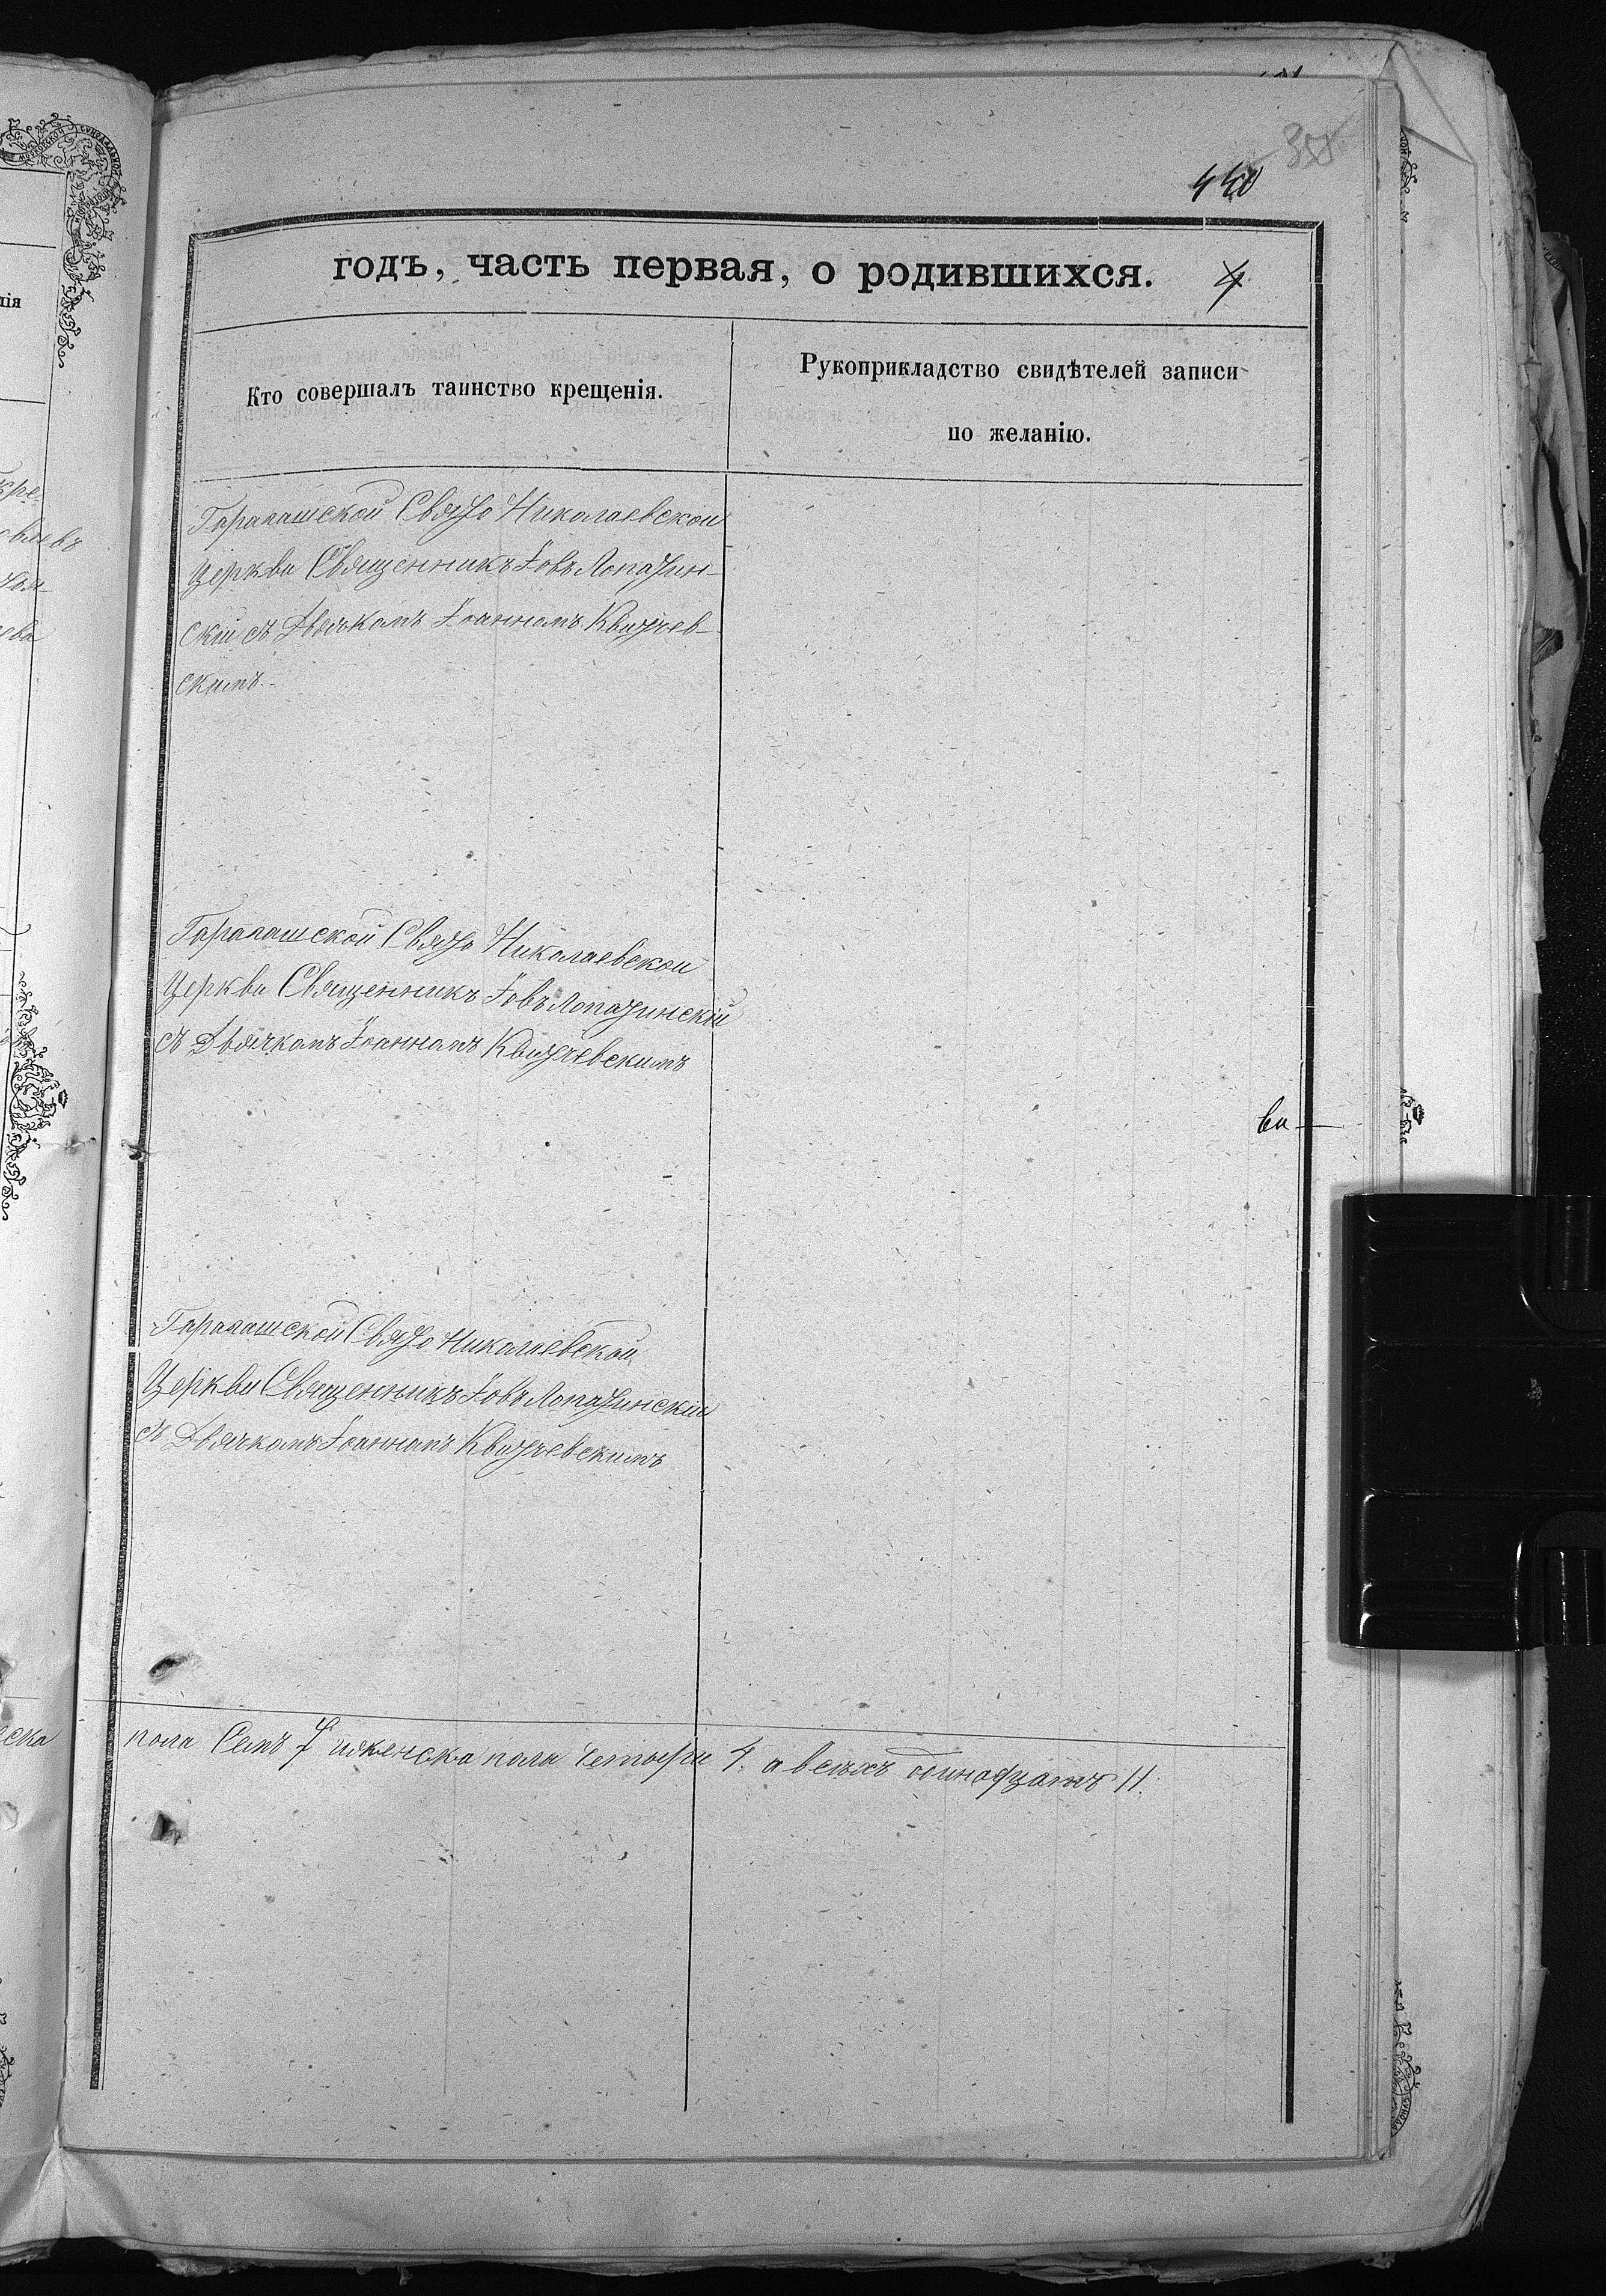 440
годъ, часть первая, о родившихся. 4
Кто совершалъ таинство крещенія.
Рукоприкладство свидѣтелей записи
по желанію.
Свято Николаевской
Церкви Священникъ Іовъ Лопатин-
скій съ Дьячкомъ Іоанномъ Квитчев-
скимъ.
Свято Николаевской
Церкви Священникъ Іовъ Лопатинскій
съ Дьячкомъ Іоанномъ Квитчевскимъ
ва
Свято Николаевской
Церкви Священникъ Іовъ Лопатинскій
съ Дьячкомъ Іоанномъ Квитчевскимъ
пола Семъ 7 и женска пола четыри 4. а всѣхъ одинадцать 11.